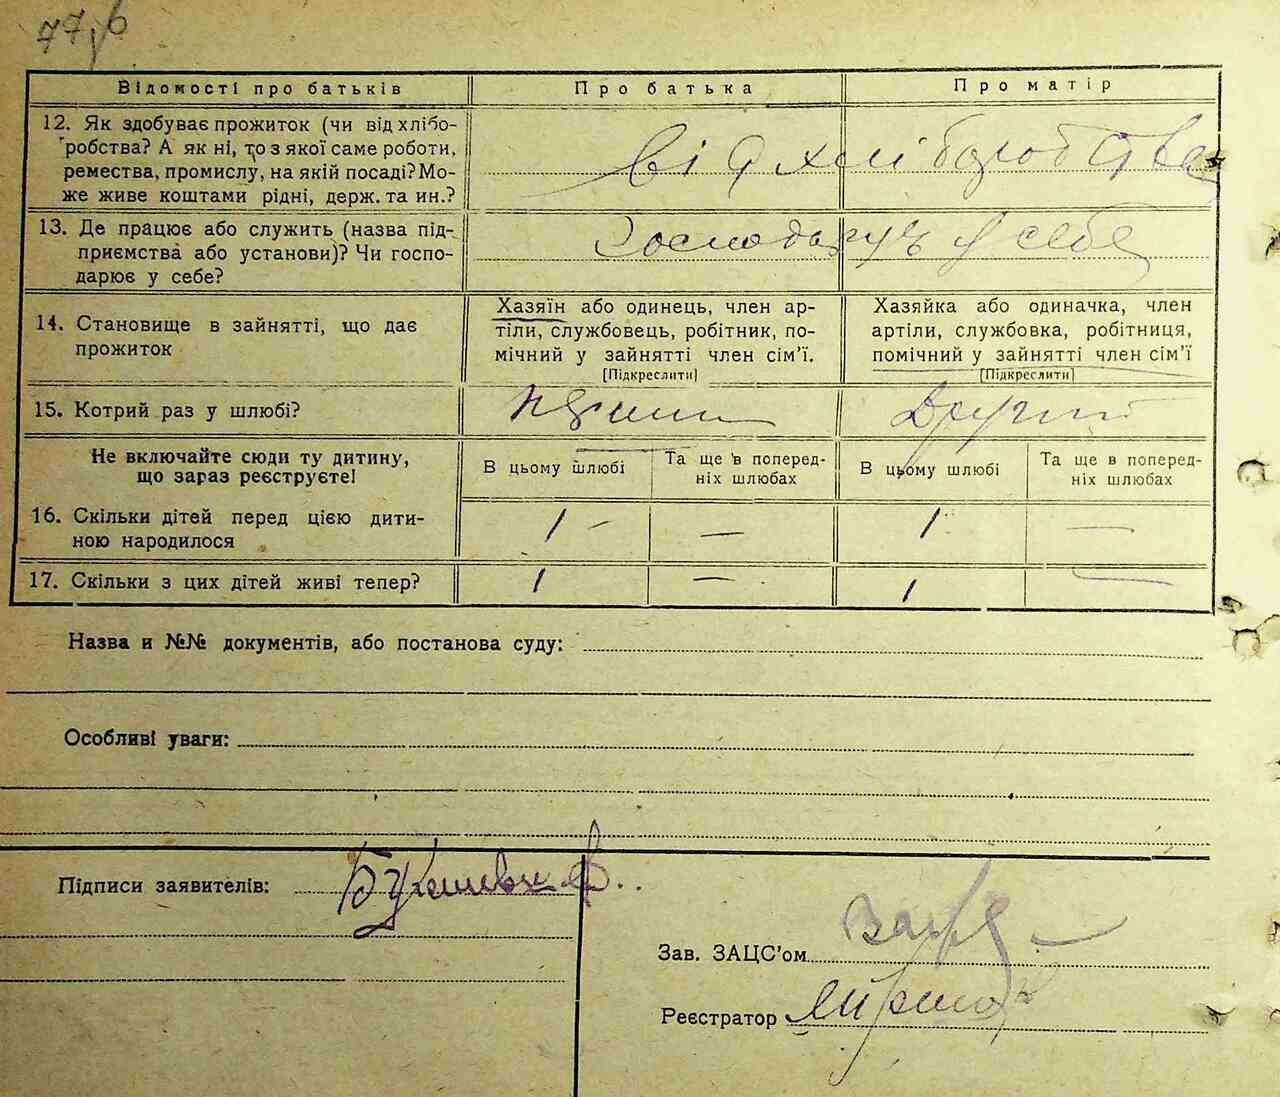 77
Відомості про батьків Про батька Про матір
12. Як здобуває прожиток (чи від хлібо-
робства? А як ні, то з якої саме роботи,
ремества, промислу, на якій посаді? Мо-
же живе коштами рідні, держ. та ин.?
від хліборобства
13. Де працює або служить (назва під-
приємства або установи)? Чи госпо-
дарює у себе?
Господарує у себе
14. Становище в зайнятті, що дає
прожиток
Хазяїн або одинець, член ар-
тіли, службовець, робітник, по-
мічний у зайнятті член сім'ї.
[Підкреслити]
Хазяйка або одиначка, член
артіли, службовка, робітниця,
помічний у зайнятті член сім'ї
[Підкреслити]
15. Котрий раз у шлюбі? Другий
Не включайте сюди ту дитину,
що зараз реєструєте!
В цьому шлюбі
Та ще в поперед-
ніх шлюбах
В цьому шлюбі
Та ще в поперед-
ніх шлюбах
16. Скільки дітей перед цією дити-
ною народилося
1 — — 1 —
17. Скільки з цих дітей живі тепер? 1 — 1 —
Назва и №№ документів, або постанова суду:
Особливі уваги:
Підписи заявителів:
Зав. ЗАЦС'ом
Реєстратор